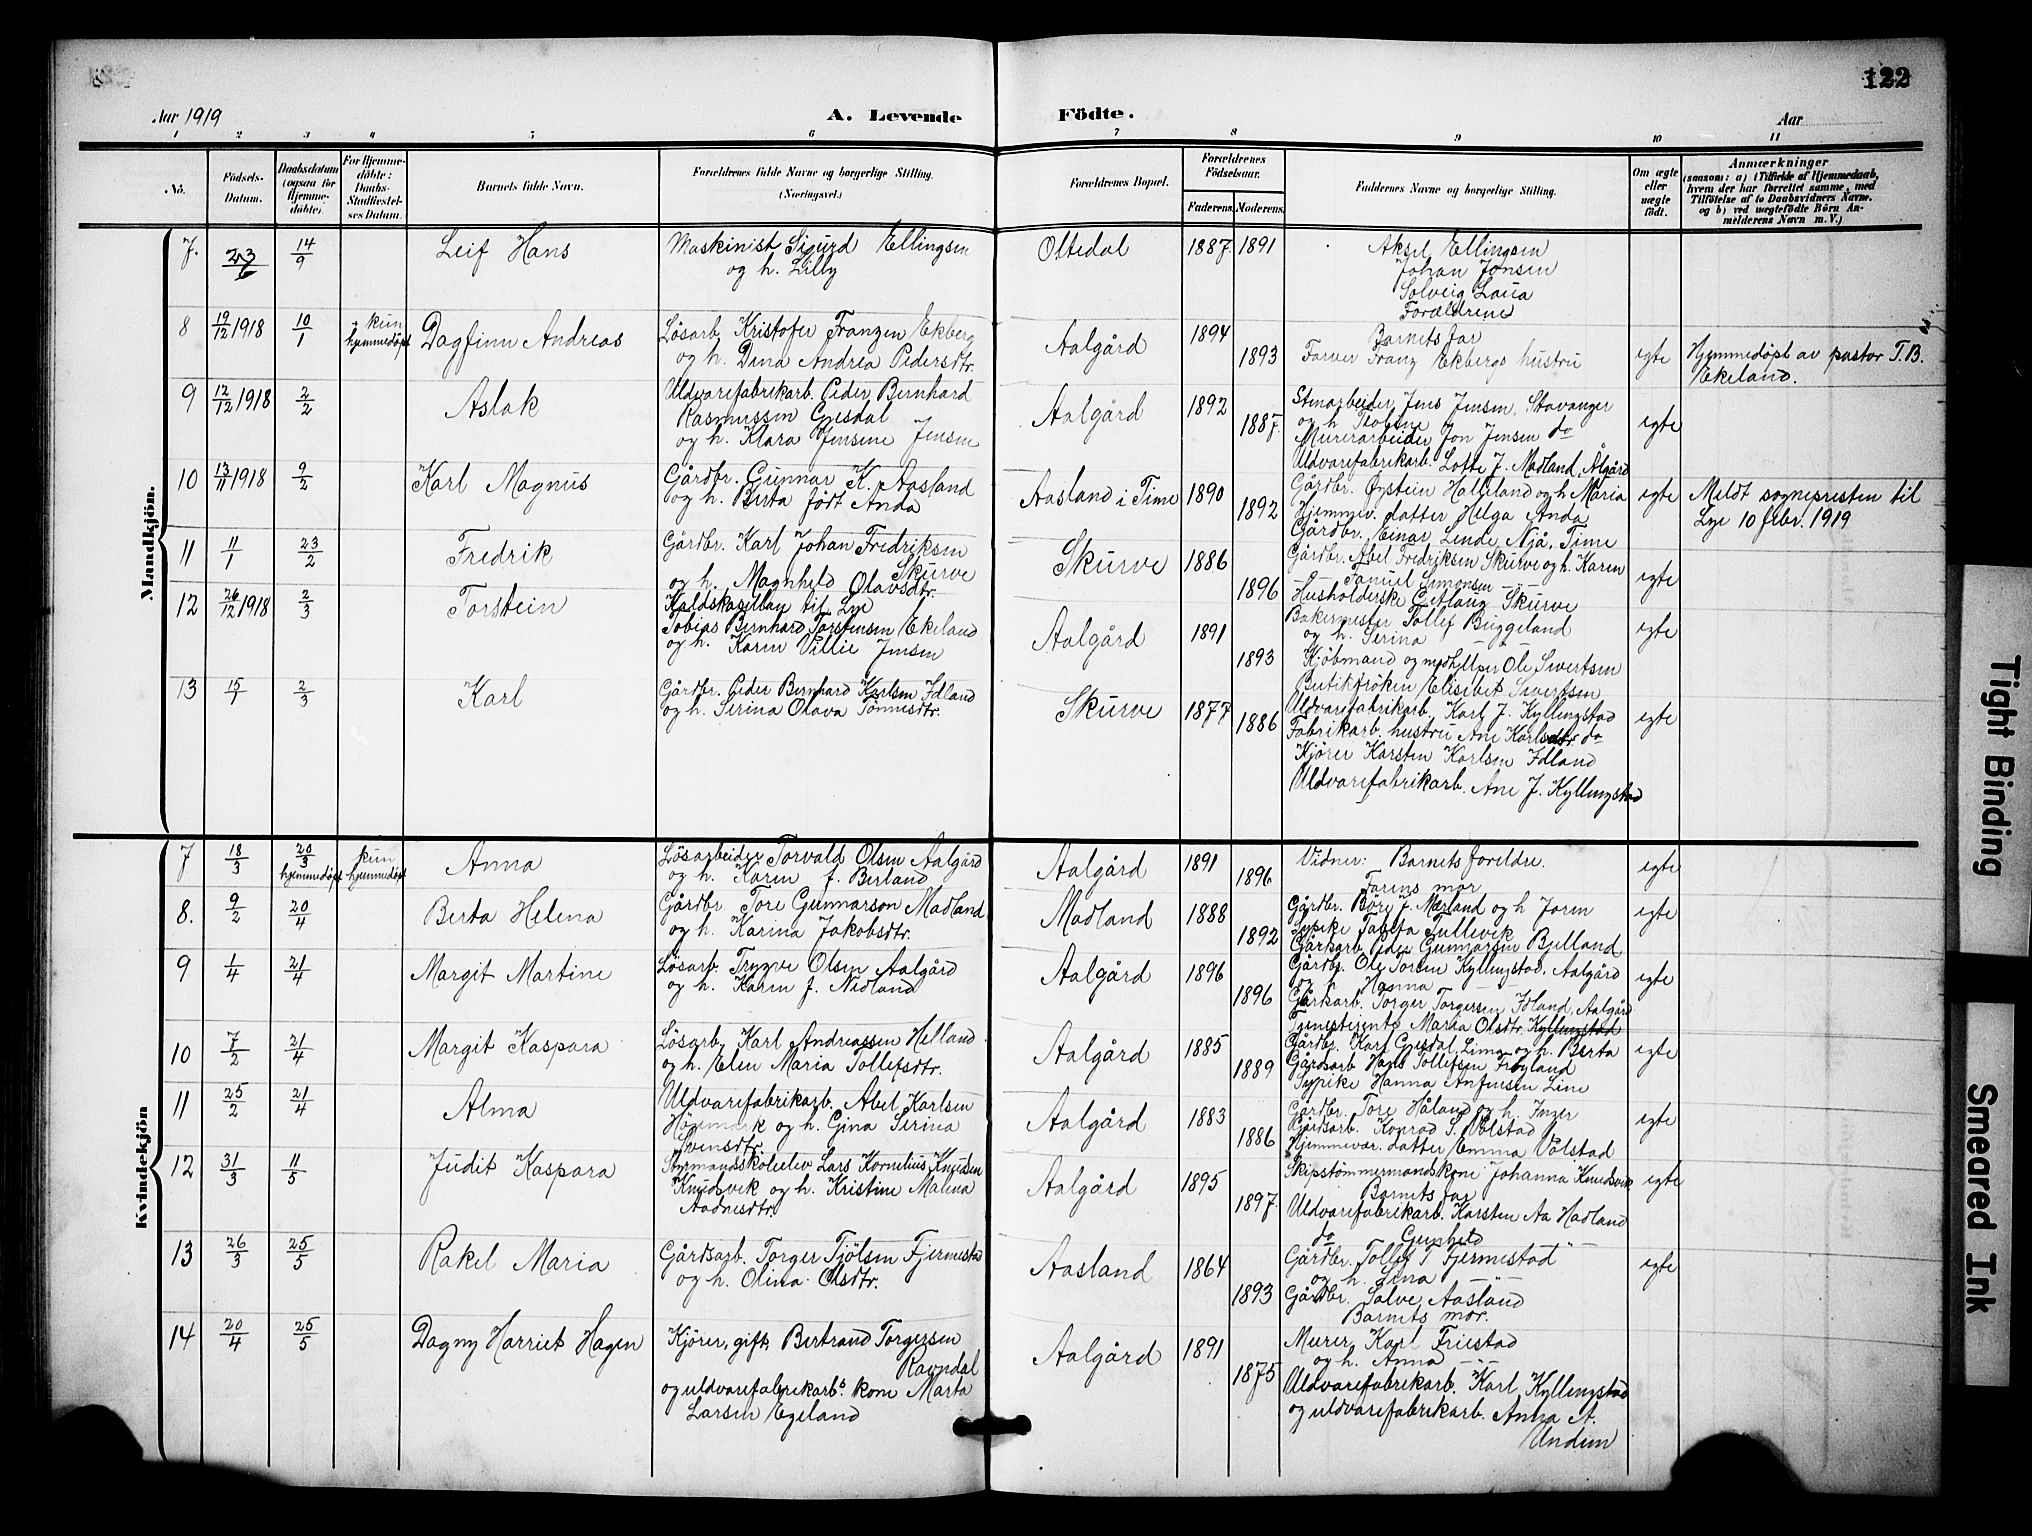 122
Aar 1919
A. Levende Födte.
Aar
1 2 3 4 5 6 7 8 9 10 11
No.
Födsels-Datum.
Daabsdatum (ogsaa for Hjemme-döbte)
For Hjemme-döbte: Daabs-Stadfæstel-ses Datum.
Barnets fulde Navn.
Forældrenes fulde Navne og borgerlige Stilling. (Næringsvei.)
Forældrenes Bopæl.
Forældrenes Födselsaar.
Faderens. Moderens.
Faddernes Navne og borgerlige Stilling.
Om ægte eller uægte födt.
Anmærkninger
(saasom: a) i Tilfælde af Hjemmedaab, hvem der har forrettet samme, med Tilföielse af to Daabsvidners Navne, og b) ved uægtefödte Börn An-melderens Navn m. V.)
Mandkjön.
7. 23/6 14/9 Leif Hans
Maskinist Sigurd Ellingsen
og h. Lilly
Oltedal 1887. 1891
Aksel Ellingsen
Johan Jonsen
Solveig
Forældrene
8 19/12 1918 10/1 kun hjemmedöpt Dagfinn Andreas
Lösarb. Kristofer Franzen Ekberg
og h. Dina Andrea Pedersdtr.
Aalgård 1894 1893
Barnets far
Farver Franz Ekbergs hustru
egte
Hjemmedöpt av pastor T.B.
Ekeland.
9 12/12 1918 2/2 Aslak
Uldvarefabrikarb. Peder Bernhard
Rasmussen Gjesdal
og h. Klara Jensine Jensen
Aalgård 1892 1887.
Stenarbeider Jens Jensen, Stavanger
og h
Murerarbeider Jon Jensen do
Uldvarefabrikarb. Lotte J. Madland, Ålgård
egte
10 13/11 1918 9/2 Karl Magnus
Gårdbr. Gunnar K. Aasland
og h. Berta född Anda
Aasland i Time 1890 1892
Gårdbr. Øystein Halleland og h. Maria
Hjemmev. datter Helga Anda
Gårdbr. Einar Lende Njå, Time
egte
Meldt sognepresten til
Lye 10 febr. 1919
11 11/1 23/2 Fredrik
Gårdbr. Karl Johan Fredriksen
Skurve
og h. Magnhild Olavsdtr.
Skurve 1886 1896
Gårdbr. Abel Fredriksen Skurve og h. Karen
Samuel Simonsen
Husholderske Skurve
egte
12 26/12 1918 2/3 Torstein
til Lye
Tobias Bernhard Torstensen Ekeland
og h. Karen Villie Jensen
Aalgård 1891 1893
Bakermester Tollef Buggeland
og h. Serina
Kjöbmand og Ole Sivertsen
Butikfröken Elisabet Sivertsen
egte
13 15/1 2/3 Karl
Gårdbr. Peder Bernhard Karlsen Idland
og h. Serina Olava Tönnesdtr.
Skurve 1877 1886
Uldvarefabrikarb. Karl J. Kyllingstad
Fabrikarb. hustru Ane Karlsdtr. do
Kjörer Karsten Karlsen Idland
Uldvarefabrikarb. Ane J. Kyllingstad
egte
Kvindekjön
7 18/3 20/3 hjemmedöpt kun hjemmedöpt Anna
Lösarbeider Torvald Olsen Aalgård
og h. Karen f. Birland
Aalgård 1891 1896
Vidner: Barnets foreldre.
Farens mor
egte
8. 9/2 20/4 Berta Helena
Gårdbr Tore Gunnarson Madland
og h. Karina Jakobsdtr.
Madland 1888 1892
Gårdbr. Böre J. Mæland og h Joren
Pypike Tabita Tullevik
Gårdsarb. Peder Gunnarsen Bjelland
egte
9 1/4 21/4 Margit Martine
Lösarb. Trygve Olsen Aalgård
og h. Karen f. Nidland
Aalgård 1896 1896
Gårdbr. Ole Torsen Kyllingstad, Aalgård
og h Hanna
Gårdsarb. Torger Torgersen Idland, Aalgård
Tjenestejente Maria Olsdtr. Kyllingstad
egte
10 7/2 21/4 Margit Kaspara
Lösarb. Karl Andreassen Helland
og h. Elen Maria Tollefsdtr.
Aalgård 1885 1889
Gårdbr. Karl Gjesdal, Lima og h. Berta
Gårdsarb Hans Tollefsen Fröyland
Pypike Hanna Anfinsen Line
egte
11 25/2 21/4 Alma
Uldvarefabrikarb. Abel Karlsen
Högemark og h. Gina Serina
Svensdtr.
Aalgård 1883 1886
Gårdbr. Tore Håland og h. Inger
Gårdsarb. Konrad S. Vølstad
Hjemmevær. datter Emma Vølstad
egte
12 31/3 11/5 Judit Kaspara
Styrmandsskoleelev Lars Kornelius Knudsen
Knudsvik og h. Kristine Malena
Aadnesdtr.
Aalgård 1895 1897.
Skipstömmermandskone Johanna Knudsvik
Barnets far
Uldvarefabrikarb. Karsten Aa Hadland
do Gunhild
egte
13 26/3 25/5 Rakel Maria
Gårdsarb. Torger Tjölsen Fjermestad
og h. Olina Olsdtr.
Aasland 1864 1893
Gårdbr. Tollef T Fjermestad
og h. Lina
Gårdbr. Salve Aasland
Barnets mor.
egte
14 20/4 25/5 Dagny Harriet Hagen
Kjörer, gift, Bertrand Torgersen
Ravndal
og uldvarefabrikarbs. kone Marta
Larsen Egeland
Aalgård 1891 1875
Murer Karl Friestad
og h. Anna
Uldvarefabrikarb. Karl Kyllingstad
og uldvarefabrikarb. Anna A.
Undem
Tight Binding
Smeared Ink